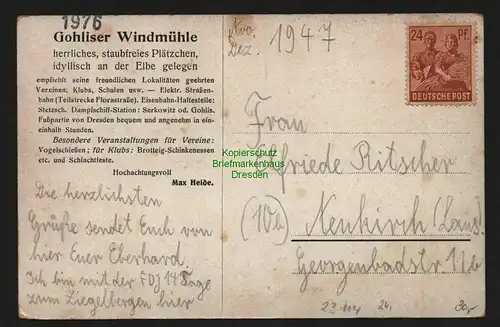 1976
Gohliser Windmühle
herrliches, staubfreies Plätzchen,
idyllisch an der Elbe gelegen
empfiehlt seine freundlichen Lokalitäten geehrten
Vereinen, Klubs, Schulen usw. — Elektr. Straßen-
bahn (Teilstrecke Florastraße). Eisenbahn-Haltestelle:
Stetzsch. Dampfschiff-Station: Serkowitz od. Gohlis.
Fußpartie von Dresden bequem und angenehm in ein-
einhalb Stunden.
Besondere Veranstaltungen für Vereine:
Vogelschießen; für Klubs: Brotteig-Schinkenessen
etc. und Schlachtfeste.
Hochachtungsvoll
Max Heide.
Die herzlichsten
Grüße sendet Euch von
hier Euer Eberhard.
Ich bin mit der FDJ 14 Tage
zum Ziegelbergen hier
Nov.
Dez. 1947
24 Pf.
DEUTSCHE POST
Frau
Elfriede Ritscher
(10b) Neukirch (Laus.)
Georgenbadstr. 11b
24.
30,-
Kopierschutz
Briefmarkenhaus
Dresden